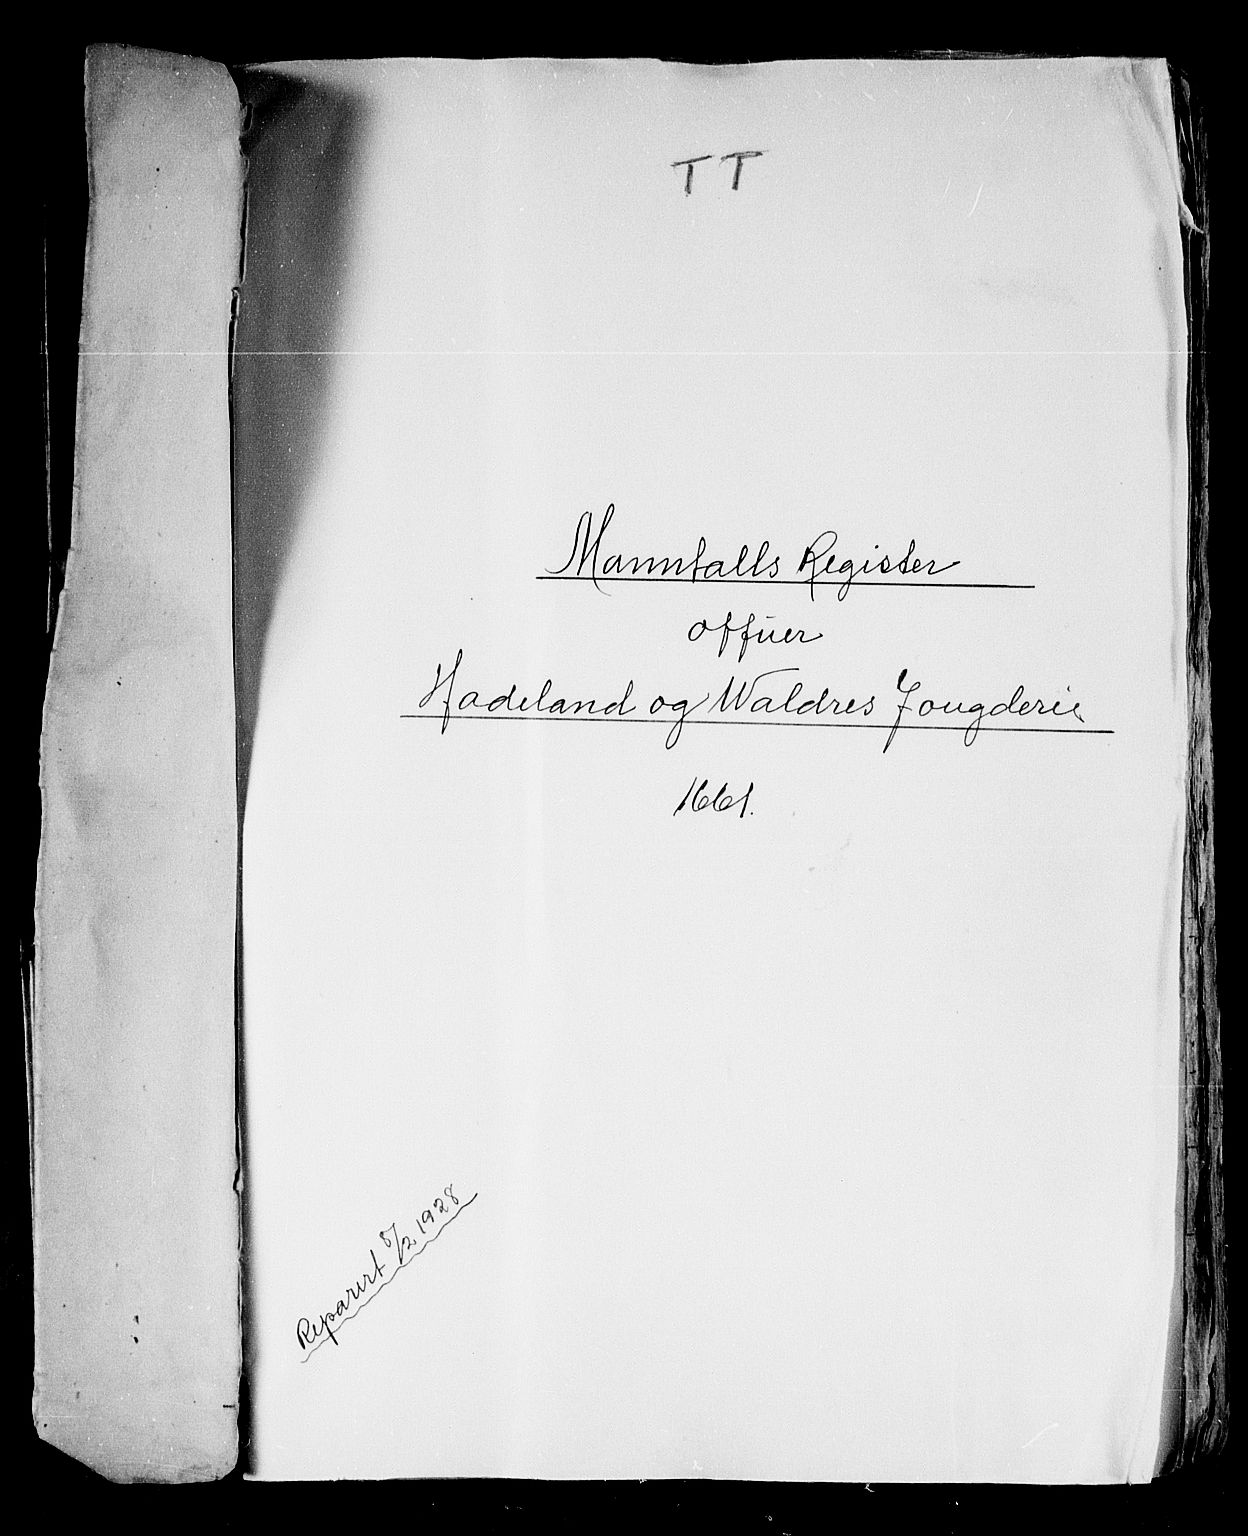 TT
Manntalls Register
offuer
Hadeland og Waldres Fougderie
1661.
Reparert 8/2 1928